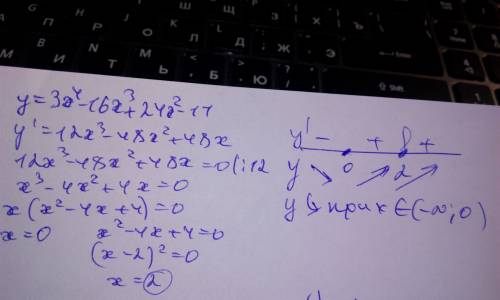 y=3x⁴-16x³+24x²-11
y'=12x³-48x²+48x
12x³-48x²+48x=0 |:12
x³-4x²+4x=0
x(x²-4x+4)=0
x=0 x²-4x+4=0
(x-2)²=0
x=2
y' - + +
y 0 2
y ↘ при x∈(-∞;0)